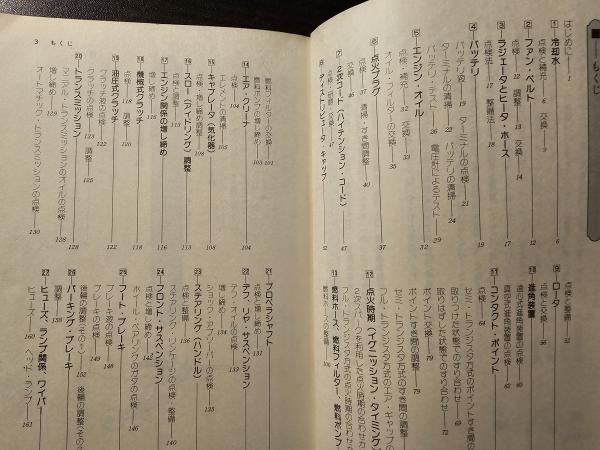 もくじ
はじめに――1
1 冷却水――6
点検と補充――6 交換――9
2 ファン・ベルト――12
点検――12 調整――13 交換――14
3 ラジエータとヒータ・ホース――17
点検法――17 整備法――18
4 バッテリ――19
バッテリ液――19 ターミナルの点検――21
ターミナルの清掃――22 バッテリの清掃――24
バッテリ・テスト――26 電圧計によるテスト――29
5 エンジン・オイル――32
点検・補充――32 交換――33
オイル・フィルターの交換――35
6 点火プラグ――37
点検――37 清掃・すき間調整――40
交換――46
7 2次コード(ハイテンション・コード)――47
点検・研磨・交換――47
8 ディストリビュータ・キャップ
点検と整備――52
9 ロータ
点検と交換――56
10 進角装置
遠心式進角装置の点検――60
真空式進角装置の点検――62
11 コンタクト・ポイント
点検――64
取りつけた状態でのすり合わせ――69
取りはずした状態でのすり合わせ――72
ポイント交換――76
ポイントすき間の調整――79
セミ・トランジスタ方式のポイントすき間の調整
フル・トランジスタ方式のエア・ギャップの
12 点火時期(イグニッション・タイミング)
2次スパークを利用した点火時期の合わせ
フル・トランジスタ方式の点火時期の合わせ方
13 燃料ホース、燃料フィルター、燃料ポンプ
燃料ホースの整備――100
3 もくじ
燃料フィルターの交換――101
燃料ポンプの増し締め――103
14 エア・クリーナ――104
点検――104
エレメントの清掃――105
15 キャブ(気化器)――108
点検・増し締め――108
16 スロー(アイドリング)調整――113
点検と調整――113
17 エンジン関係の増し締め――116
増し締め――116
18 機械式クラッチ――118
点検――118 調整――120
19 油圧式クラッチ――122
クラッチ液の点検――122 調整――123
クラッチの点検――125
20 トランスミッション――128
マニアル・トランスミッションのオイルの点検――128
増し締め――129
オートマチック・トランスミッションの点検――130
21 プロペラシャフト――131
点検・増し締め――131
22 デフ、リヤ・サスペンション――133
デフ・オイルの点検――133
増し締め――134
ショック・アブソーバーの点検――135
23 ステアリング(ハンドル)――136
点検と整備――136
ステアリング・リンケージの点検・整備――140
24 フロント・サスペンション――142
点検と増し締め――142
ホイール・ベアリングのガタの点検――146
25 フート・ブレーキ――148
ブレーキ液の点検――148
ブレーキの点検――149
26 パーキング・ブレーキ
調整――158
27 ヒューズ、ランプ関係、ワイパー
ヒューズ――160 ヘッド・ランプ――161